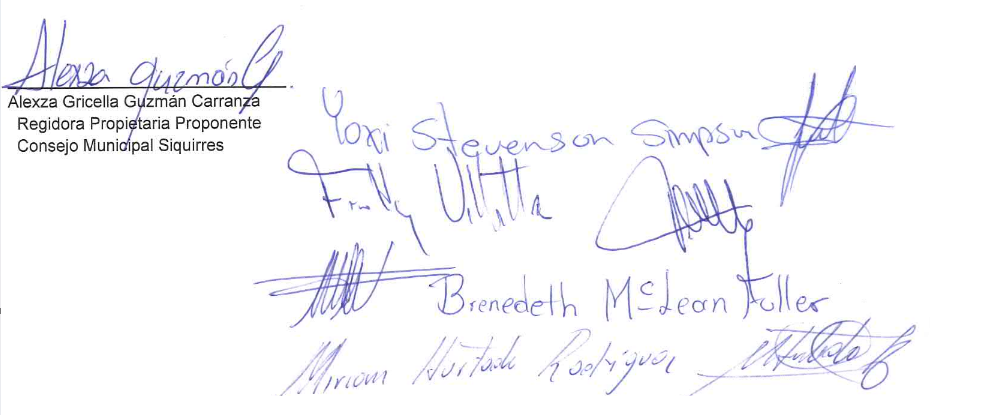 Alexza Guzmán G
Alexza Gricella Guzmán Carranza
Regidora Propietaria Proponente
Consejo Municipal Siquirres
Yoxi Stevenson Simpson
Brenedeth McLean Fuller
Miriam Hurtado Rodríguez